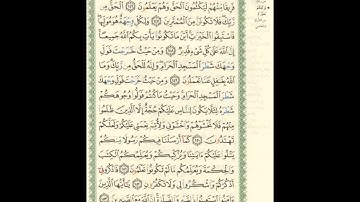 فَرِيقًا مِّنْهُمْ لَيَكْتُمُونَ ٱلْحَقَّ وَهُمْ يَعْلَمُونَ ١٤٦ ٱلْحَقُّ مِن
رَّبِّكَ فَلَا تَكُونَنَّ مِنَ ٱلْمُمْتَرِينَ ١٤٧ وَلِكُلٍّ وِجْهَةٌ هُوَ مُوَلِّيهَا
فَٱسْتَبِقُوا۟ ٱلْخَيْرَٰتِ أَيْنَ مَا تَكُونُوا۟ يَأْتِ بِكُمُ ٱللَّهُ جَمِيعًا
إِنَّ ٱللَّهَ عَلَىٰ كُلِّ شَىْءٍ قَدِيرٌ ١٤٨ وَمِنْ حَيْثُ خَرَجْتَ فَوَلِّ
وَجْهَكَ شَطْرَ ٱلْمَسْجِدِ ٱلْحَرَامِ وَإِنَّهُۥ لَلْحَقُّ مِن رَّبِّكَ وَمَا
ٱللَّهُ بِغَٰفِلٍ عَمَّا تَعْمَلُونَ ١٤٩ وَمِنْ حَيْثُ خَرَجْتَ فَوَلِّ وَجْهَكَ
شَطْرَ ٱلْمَسْجِدِ ٱلْحَرَامِ وَحَيْثُ مَا كُنتُمْ فَوَلُّوا۟ وُجُوهَكُمْ
شَطْرَهُۥ لِئَلَّا يَكُونَ لِلنَّاسِ عَلَيْكُمْ حُجَّةٌ إِلَّا ٱلَّذِينَ ظَلَمُوا۟
مِنْهُمْ فَلَا تَخْشَوْهُمْ وَٱخْشَوْنِى وَلِأُتِمَّ نِعْمَتِى عَلَيْكُمْ وَلَعَلَّكُمْ
تَهْتَدُونَ ١٥٠ كَمَآ أَرْسَلْنَا فِيكُمْ رَسُولًا مِّنكُمْ
يَتْلُوا۟ عَلَيْكُمْ ءَايَٰتِنَا وَيُزَكِّيكُمْ وَيُعَلِّمُكُمُ ٱلْكِتَٰبَ
وَٱلْحِكْمَةَ وَيُعَلِّمُكُم مَّا لَمْ تَكُونُوا۟ تَعْلَمُونَ ١٥١ فَٱذْكُرُونِىٓ
أَذْكُرْكُمْ وَٱشْكُرُوا۟ لِى وَلَا تَكْفُرُونِ ١٥٢ يَٰٓأَيُّهَا ٱلَّذِينَ